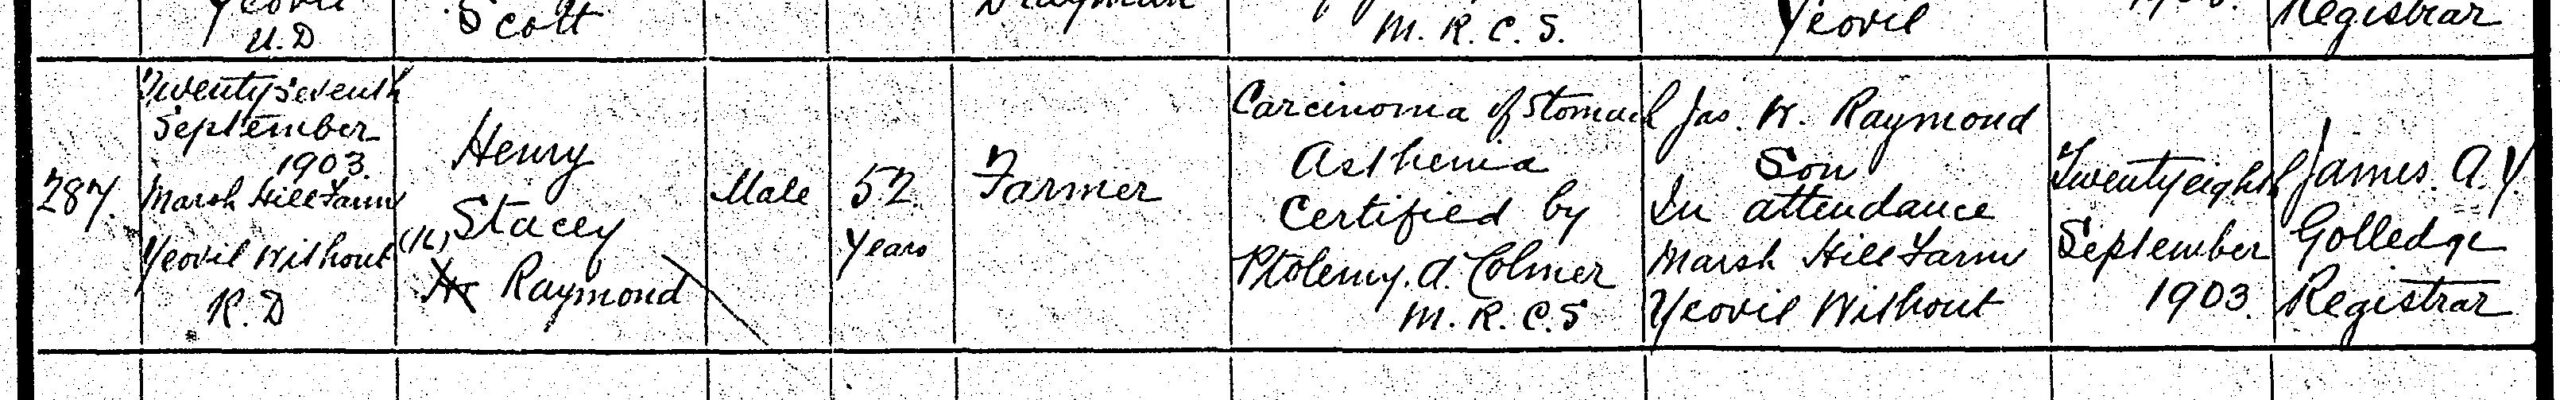 Yeovil
U.D
Scott
Drayman
M. R. C. S.
Yeovil
Registrar
287.
Twenty seventh
September
1903.
Marsh Hill Farm
Yeovil Without
R.D
Henry
Stacey
Raymond
Male
52
Years
Farmer
Carcinoma of Stomach
Asthenia
Certified by
Ptolemy. A. Colmer
M. R. C. S
Jas. W. Raymond
Son
In attendance
Marsh Hill Farm
Yeovil Without
Twenty eighth
September
1903.
James. A. Y.
Golledge
Registrar